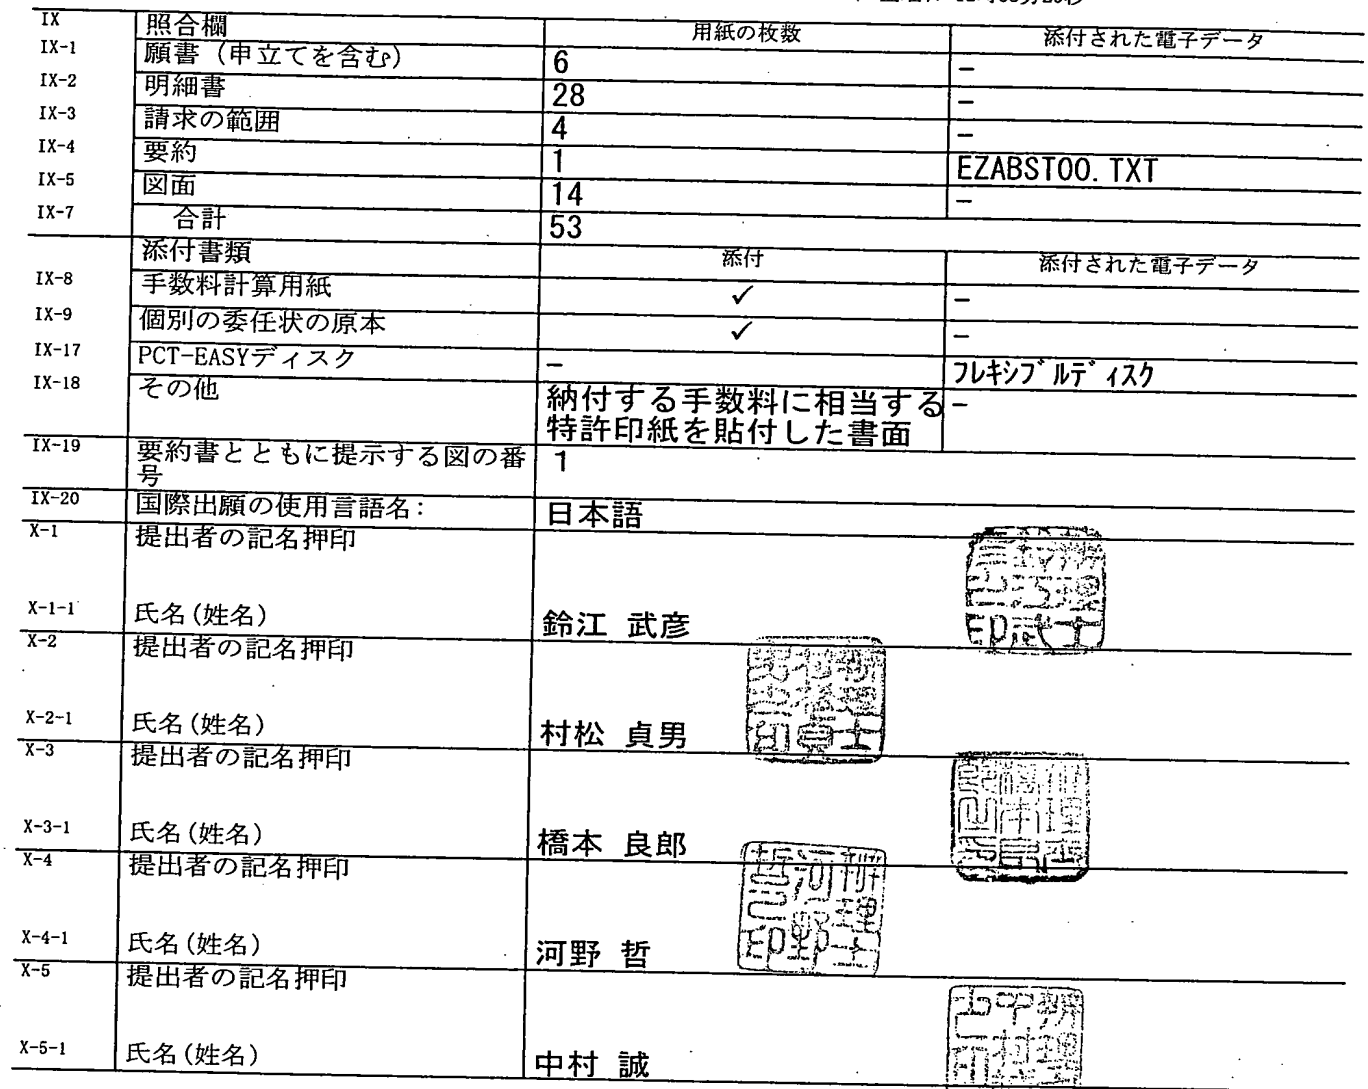 IX 照合欄 用紙の枚数 添付された電子データ
IX-1 願書（申立てを含む） 6 -
IX-2 明細書 28 -
IX-3 請求の範囲 4 -
IX-4 要約 1 EZABST00.TXT
IX-5 図面 14 -
IX-7 合計 53
添付書類 添付 添付された電子データ
IX-8 手数料計算用紙 ✓ -
IX-9 個別の委任状の原本 ✓ -
IX-17 PCT-EASYディスク - フレキシブルディスク
IX-18 その他 納付する手数料に相当する -
特許印紙を貼付した書面
IX-19 要約書とともに提示する図の番 1
号
IX-20 国際出願の使用言語名: 日本語
X-1 提出者の記名押印
X-1-1 氏名(姓名) 鈴江 武彦
X-2 提出者の記名押印
X-2-1 氏名(姓名) 村松 貞男
X-3 提出者の記名押印
X-3-1 氏名(姓名) 橋本 良郎
X-4 提出者の記名押印
X-4-1 氏名(姓名) 河野 哲
X-5 提出者の記名押印
X-5-1 氏名(姓名) 中村 誠